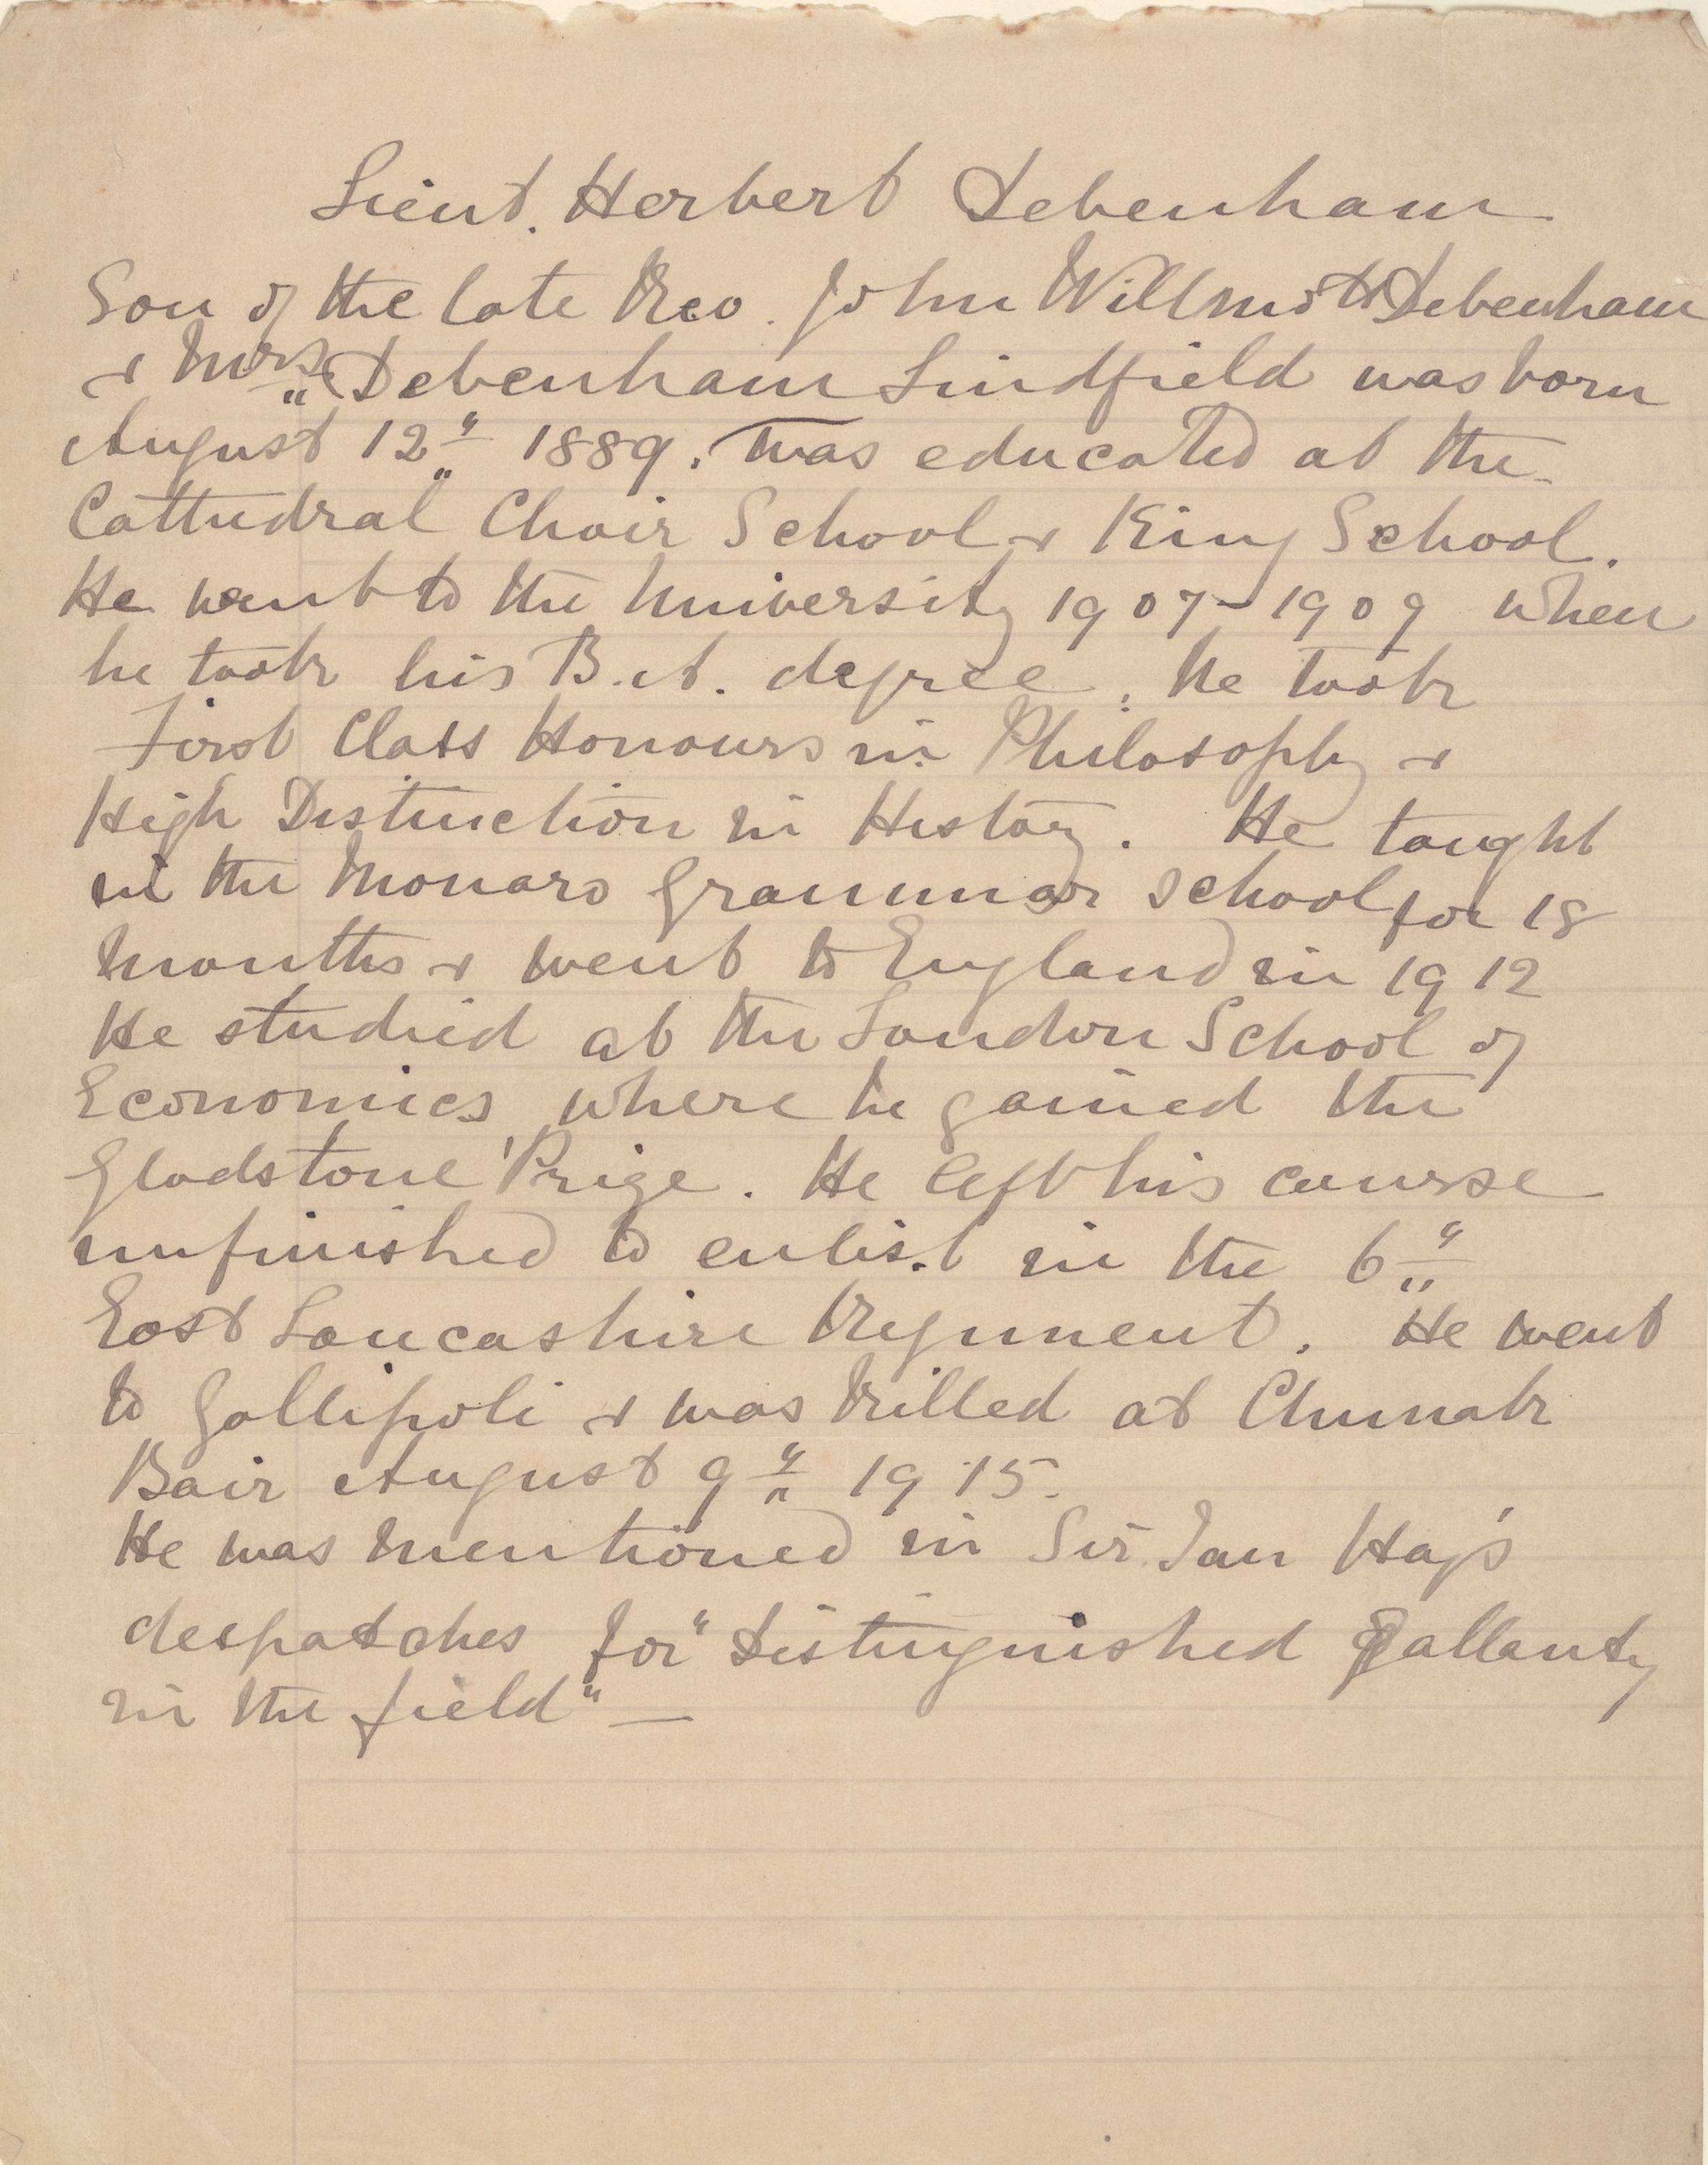 Lieut. Herbert Debenham
Son of the late Rev. John Willmott Debenham
& Mrs Debenham Lindfield was born
August 12" 1889. Was educated at the
Cathedral Choir School & King School.
He went to the University 1907-1909 when
he took his B.A. degree. He took
First Class Honours in Philosophy &
High Distinction in History. He taught
in the Monaro Grammar School for 18
months & went to England in 1912
He studied at the London School of
Economics where he gained the
Gladstone Prize. He left his course
unfinished to enlist in the 6"
East Lancashire Regiment. He went
to Gallipoli & was killed at Chunak
Bair August 9" 1915.
He was mentioned in Sir Ian Hay's
despatches for "Distinguished Gallantry
in the field" —